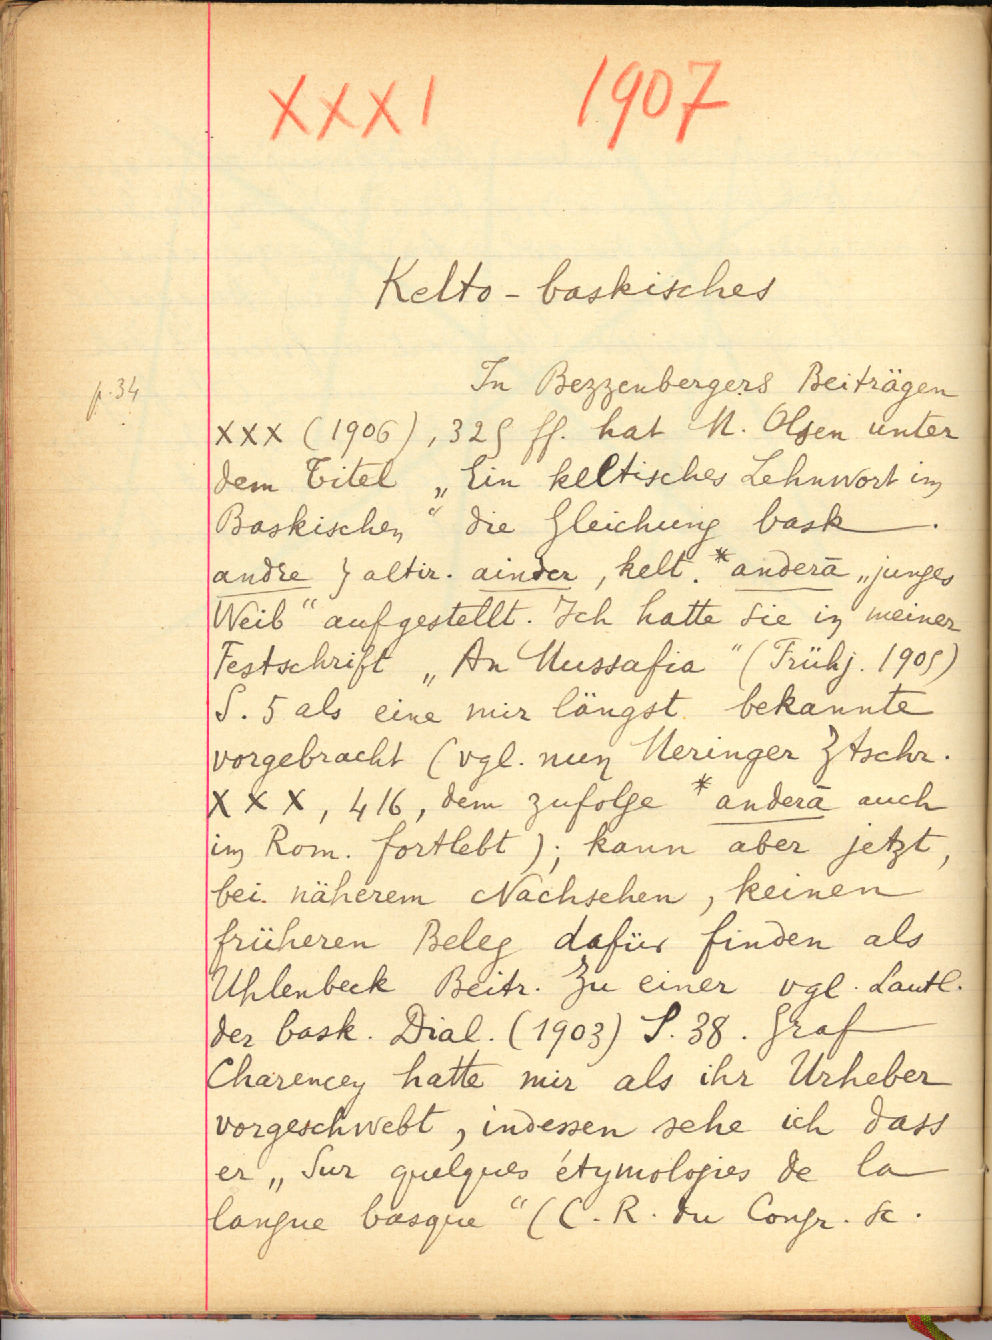 XXXI 1907
Kelto-baskisches
p. 34
In Bezzenbergers Beiträgen
XXX (1906), 325 ff. hat M. Olsen unter
dem Titel „Ein keltisches Lehnwort im
Baskischen“ die Gleichung bask
andre } altir. ainder, kelt. *anderā „junges
Weib“ aufgestellt. Ich hatte sie in meiner
Festschrift „An Mussafia“ (Frühj. 1905)
S. 5 als eine mir längst bekannte
vorgebracht (vgl. nun Meringer Ztschr.
XXX, 416, dem zufolge *anderā auch
im Rom. fortlebt); kann aber jetzt,
bei näherem Nachsehen, keinen
früheren Beleg dafür finden als
Uhlenbeck Beitr. Zu einer vgl. Lautl.
der bask. Dial. (1903) S. 38. Graf
Charencey hatte mir als ihr Urheber
vorgeschwebt, indessen sehe ich dass
er „Sur quelques étymologies de la
langue basque“ (C. R. du Congr. sc.